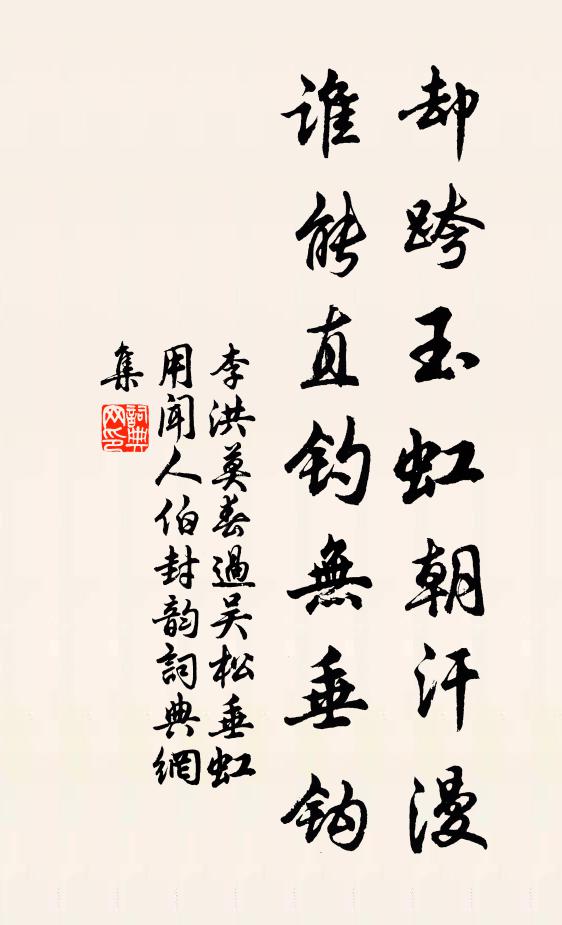 却跨玉虹朝汗漫
谁能直钓無垂钩
李洪莫春過吴松垂虹
用闻人伯封韵詞典網
集
詞典网印